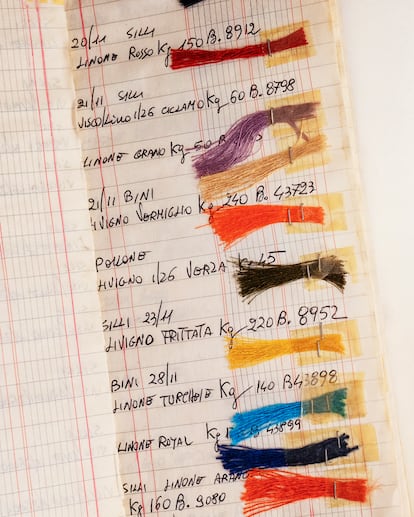 20/11 SILLI
LINONE ROSSO Kg 150 B. 8912
21/11 SILLI
VISCO/LINO 1/26 CICLAMO Kg 60 B. 8798
LINONE GRANO Kg 50 B
21/11 BINI
LIVIGNO VERMIGLIO Kg 240 B. 43723
POLLONE
LIVIGNO 1/26 VERZA Kg 45
SILLI 23/11
LIVIGNO FRITTATA Kg 220 B. 8952
BINI 28/11
LINONE TURCHESE Kg 140 B 43898
LINONE ROYAL Kg 43899
SILLI LINONE
Kg 160 B. 9080